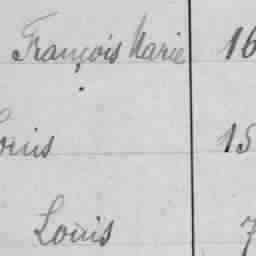 François Marie 16
ouis 15
Louis 7